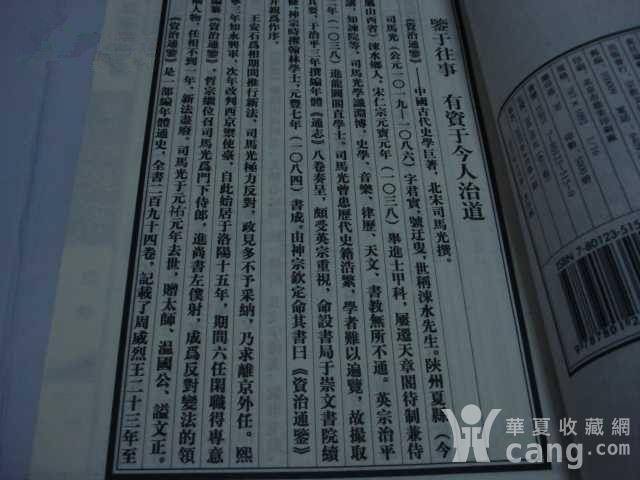 鑒于往事 有資于今人治道
《資治通鑒》——中國古代史學巨著，北宋司馬光撰。
司馬光（公元一〇一九—一〇八六）字君實，號迂叟，世稱涑水先生。陝州夏縣（今
屬山西省）涑水鄉人，宋仁宗元寶元年（一〇三八）舉進士甲科，屢遷天章閣待制兼侍
知諫院等。司馬光學識淵博，史學、音樂、律歷、天文、書教無所不通。英宗治平
年（一〇三八）進龍圖閣直學士。司馬光曾患歷代史籍浩繁，學者難以遍覽，故撮取
要，于治平三年撰編年體《通志》八卷奏呈，頗受英宗重視，命設書局于崇文書院續
修神宗時擢翰林學士，元豐七年（一〇八四）書成。由神宗欽定命其書曰《資治通鑒》
并親爲作序。
王安石爲相期間推行新法，司馬光極力反對，政見多不予采納，乃求離京外任。熙
三年知永興軍，次年改判西京禦使臺，自此始居于洛陽十五年，期間六任閑職得專意
《資治通鑒》，哲宗繼位召司馬光爲門下侍郎，進尚書左僕射，成爲反對變法的領
人物，任相不到一年，新法盡廢。司馬光于元祐元年去世，贈太師、温國公、謚文正。
《資治通鑒》是一部編年體通史，全書二百九十四卷，記載了周威烈王二十三年至
ISBN 7-80123-515
華夏收藏網
cang.com